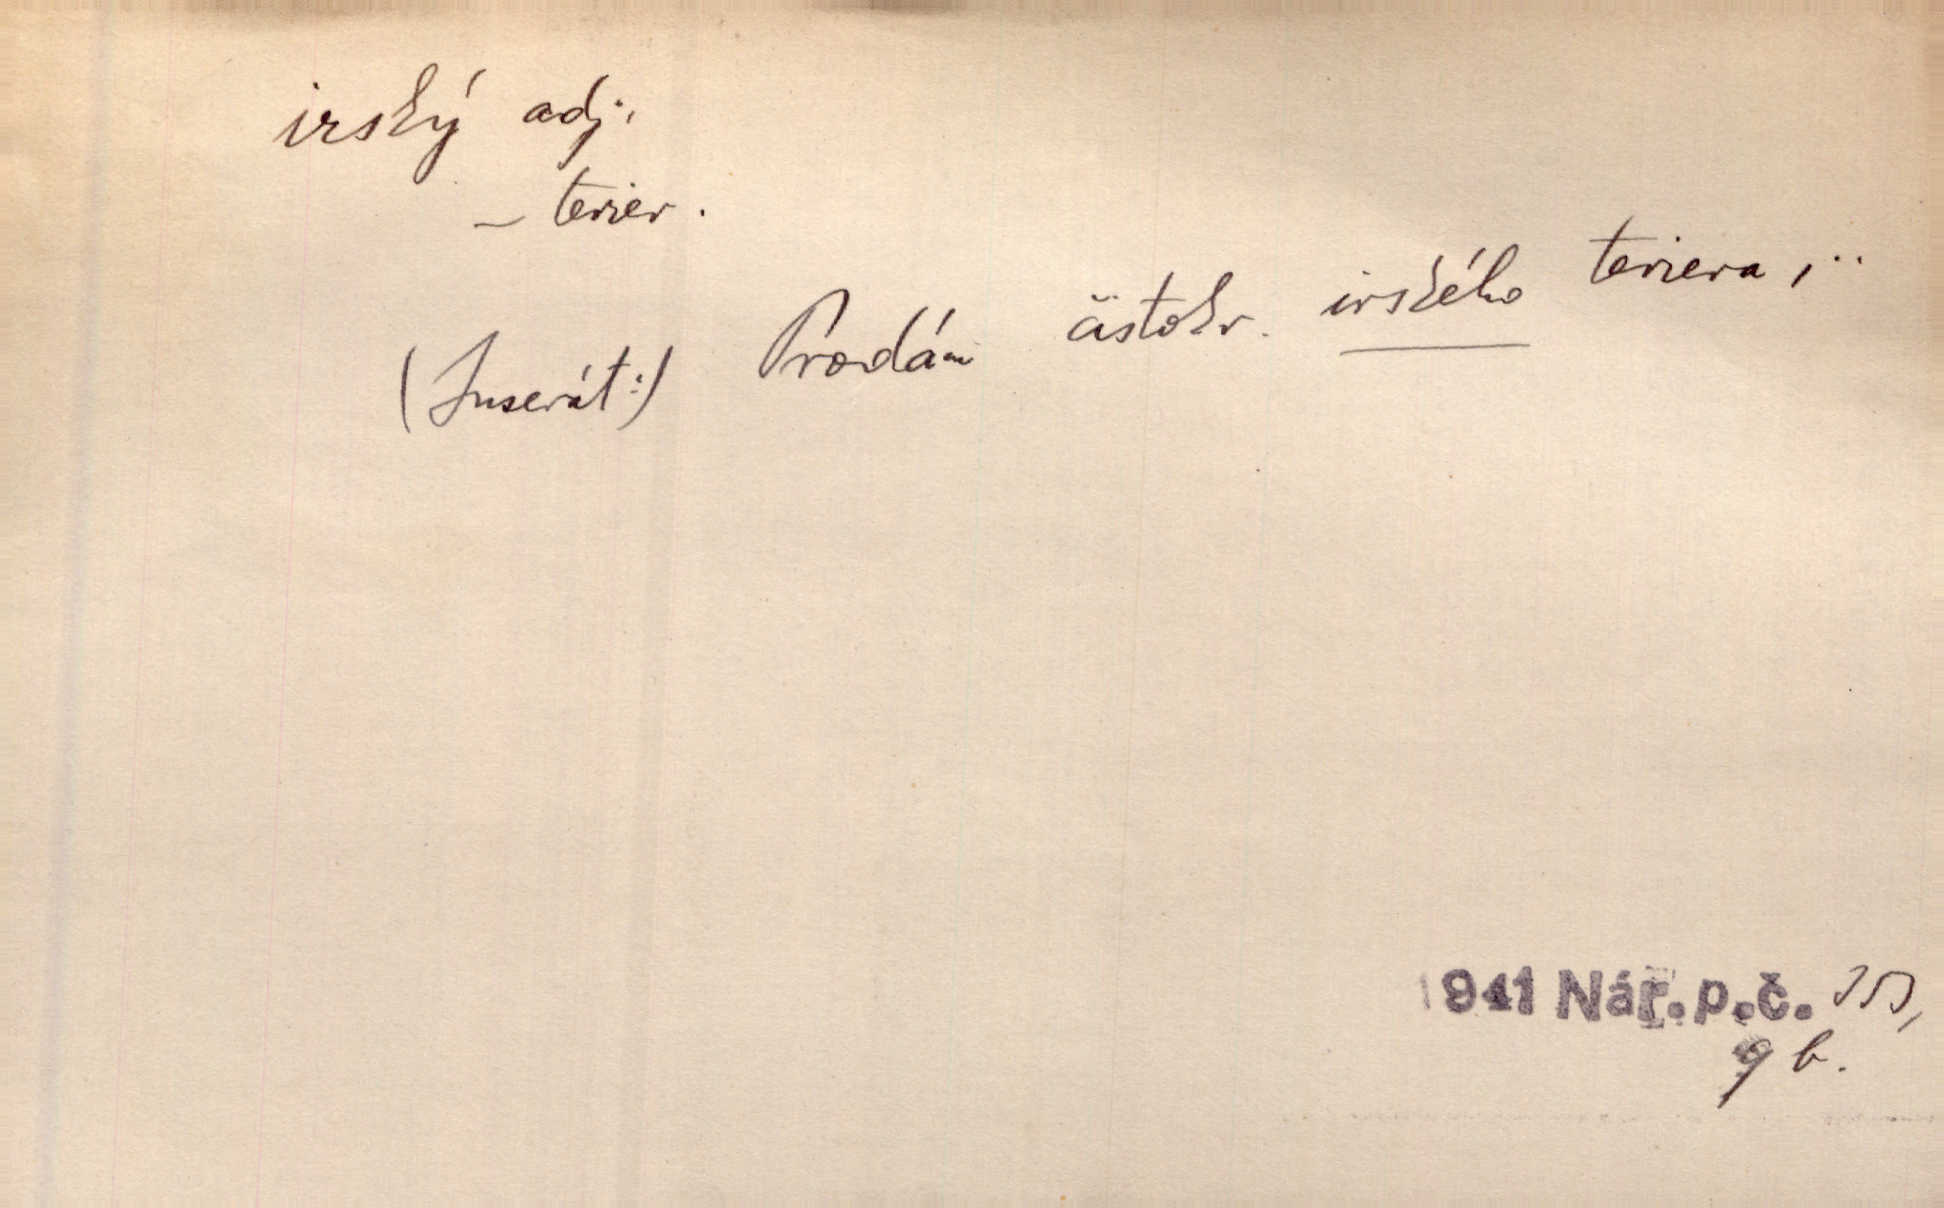 irský adj.
– terier.
(Inserát:) Prodám čistokr. irského teriera, ..
1941 Nár. p. č.
9 b.